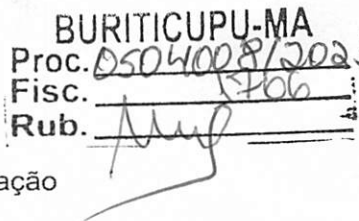 BURITICUPU-MA
Proc. 0504008/202
Fisc. 1766
Rub.
ação